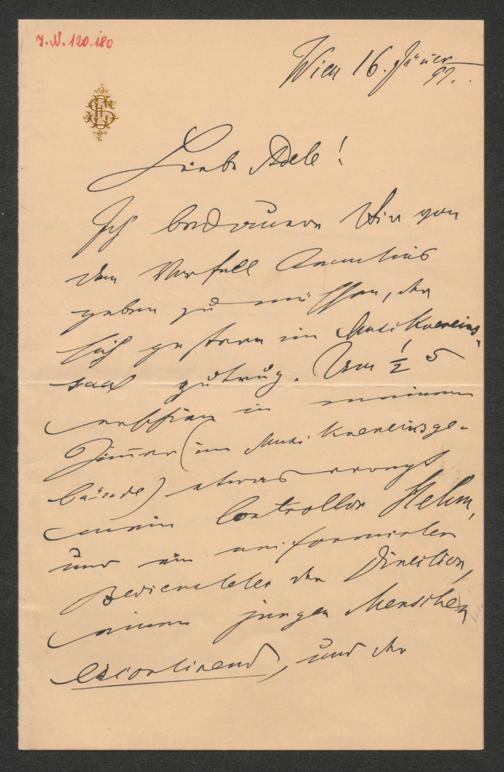 J.N. 120.180
Wien 16. Jäner
97.
Liebe Adele!
Ich bedauere Dir von
dem Vorfall Kenntnis
geben zu müssen, der
sich gestern im Musikvereins-
saal zutrug. Um ½ 5
erschien in meinem
Zimmer (im Musikvereinsge-
bäude) etwas erregt
mein Controllor Helm,
und ein uniformirter
Bediensteter der Direction,
einen jungen Menschen
escortirend, und der